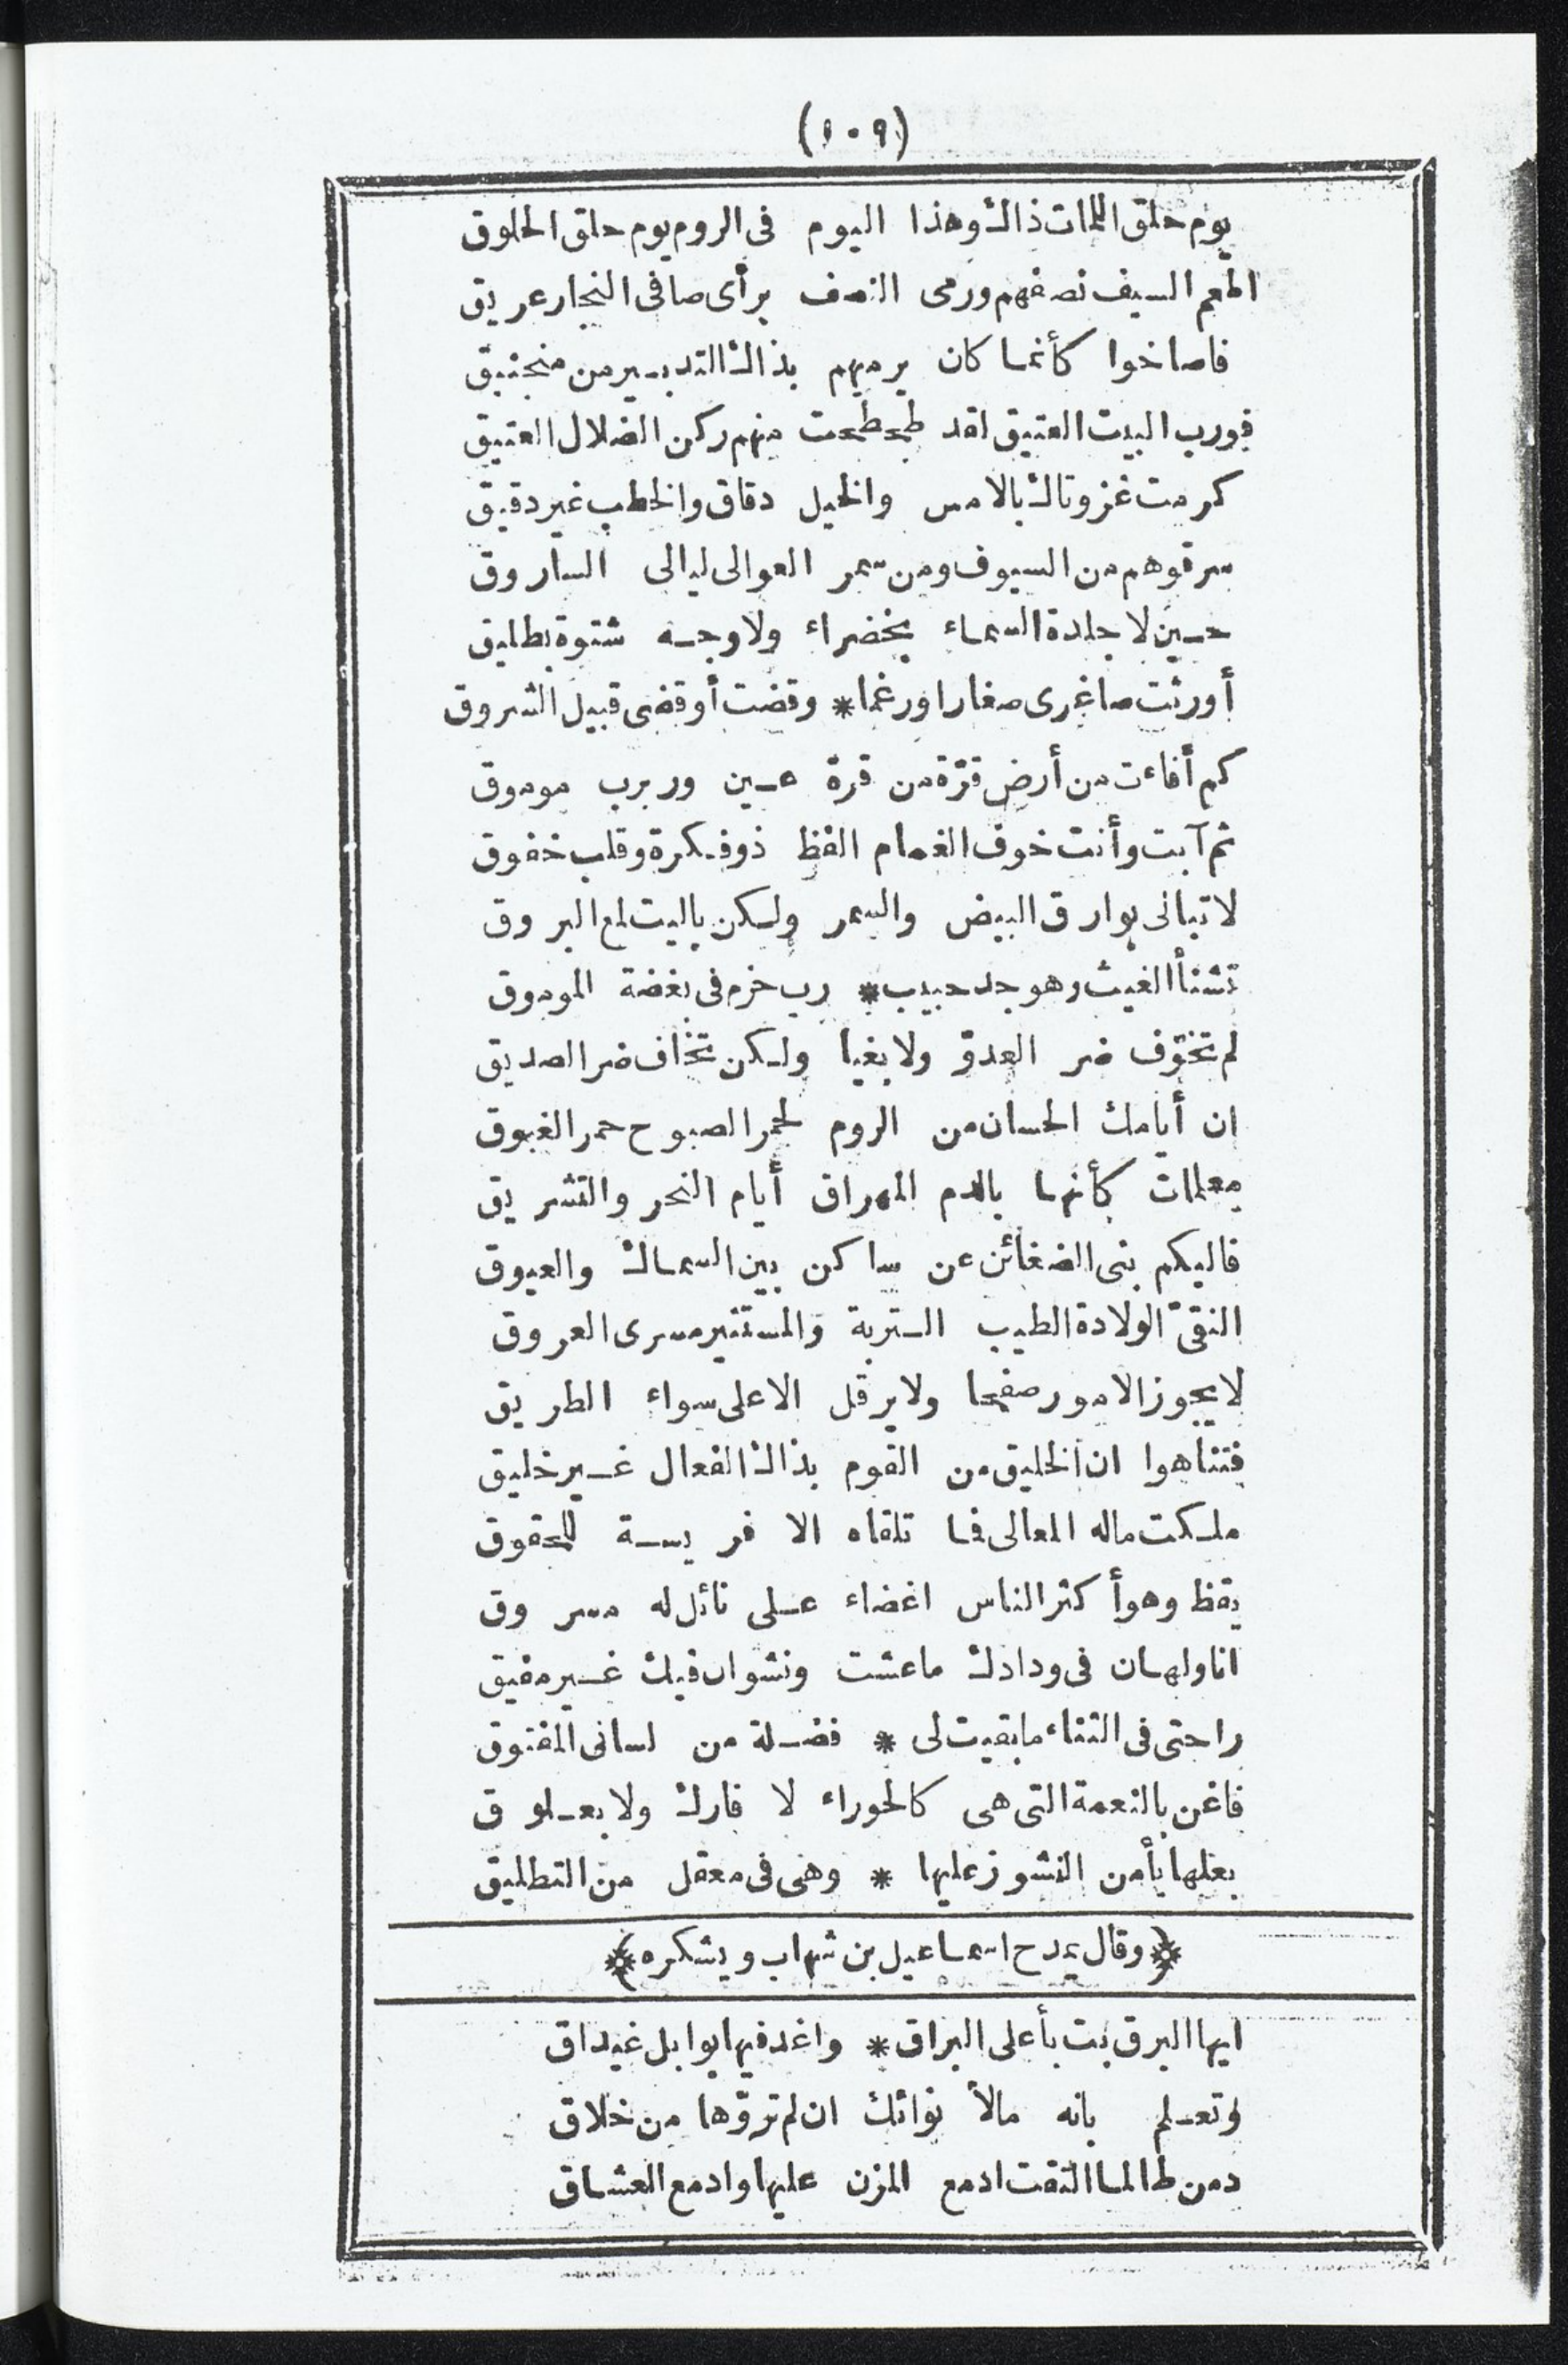 (١٠٩)
يوم حلق اللمات ذاك وهذا اليوم فى الروم يوم حلق الحلوق
اطعم السيف نصفهم ورمى النصف برأى صافى النجار عريق
فاصاخوا كأنما كان يرميهم بذاك التدبير من منجنيق
فورب البيت العتيق لقد طحطحت منهم ركن الضلال العتيق
كرمت غزوتاك بالامس والخيل دقاق والخطب غير دقيق
سرقوهم من السيوف ومن سمر العوالى ليالى الساروق
حين لا جلدة السماء بخضراء ولا وجه شتوة بطليق
أورثت صاغرى صغارا ورغما * وقضت أوقضى قبيل الشروق
كم أفاءت من أرض قرّة من قرة عين وربرب موموق
ثم آبت وأنت خوف الغمام الفظ ذو فكرة وقلب خفوق
لا تبالى بوارق البيض والسمر ولكن باليت لمع البروق
تشنأ الغيث وهو جد حبيب * رب خزم فى بغضة الموموق
لم تخوّف ضر العدوّ ولا بغيا ولكن تخاف ضر الصديق
ان أيامك الحسان من الروم لحمر الصبوح حمر الغبوق
معلمات كأنها بالدم المهراق أيام النحر والتشريق
فاليكم بنى الضغائن عن ساكن بين السماك والعيوق
النقىّ الولادة الطيب التربة والمستنير مسرى العروق
لا يجوز الامور صفحا ولا يرقل الا على سواء الطريق
فتناهوا ان الخليق من القوم بذاك الفعال غير خليق
ملكت ماله المعالى فما تلقاه الا فريسة للحقوق
يقظ وهو أكثر الناس اغضاء على نائل له مسروق
انا ولهان فى ودادك ما عشت ونشوان فيك غير مفيق
راحتى فى الثناء ما بقيت لى * فضلة من لسانى المفتوق
فاغن بالنعمة التى هى كالحوراء لا فارك ولا بعلوق
بعلها يأمن النشوز عليها * وهى فى معقل من التطليق
﴿وقال يمدح اسماعيل بن شهاب ويشكره﴾
ايها البرق بت بأعلى البراق * واغد فيها بوابل غيداق
وتعلم بانه مالأ نوائك ان لم تروّها من خلاق
دمن طالما التقت ادمع المزن عليها وادمع العشاق